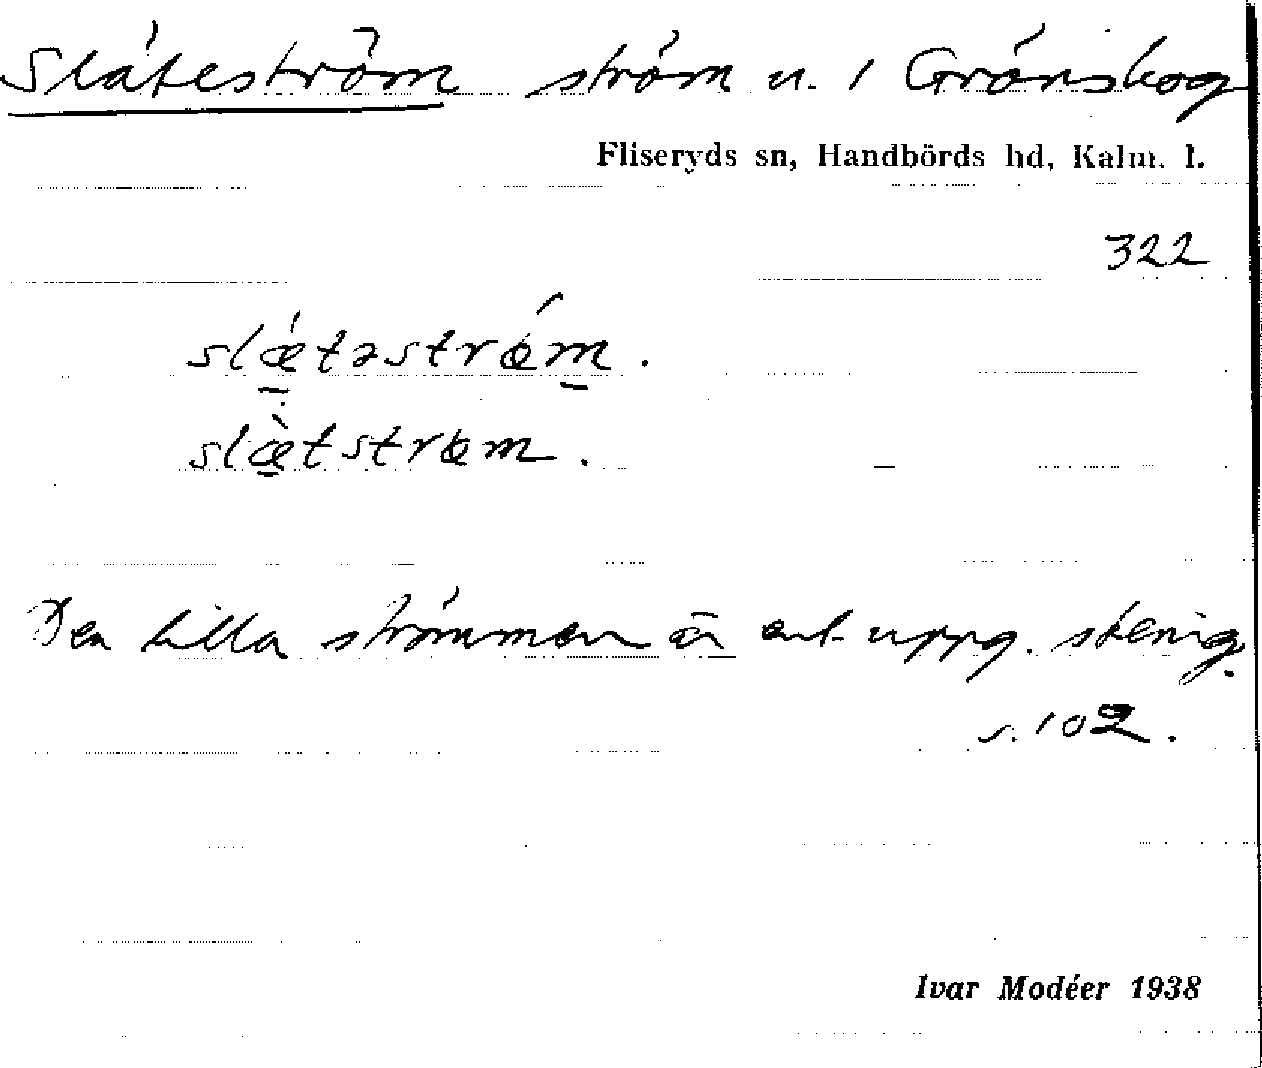 Släteström ström u. / Grönskog
Fliseryds sn, Handbörds hd, Kalm. l.
322
slǽtəstrǿm.
slæ̀tstrøm.
Den lilla strömmen är enl. uppg. stenig.
s. 102.
Ivar Modéer 1938